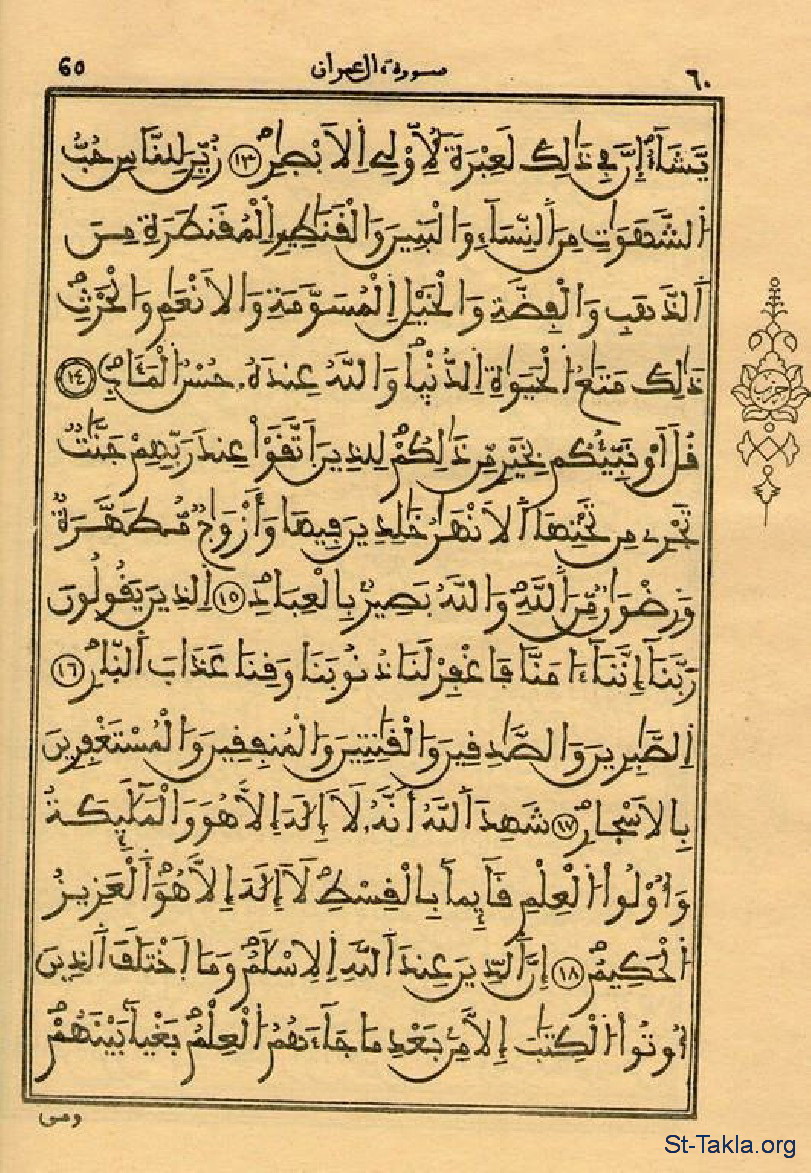 ٦٠ سورة ءال عمران 60
يَّشَآءُ اِ۪نَّ فِے ذَٰلِكَ لَعِبْرَةٗ لِّأُوْلِے اِ۬لَابْصٰ۪رِۖ ١٣ زُيِّنَ لِلنَّاسِ حُبُّ
اُ۬لشَّهَوَٰتِ مِنَ اَ۬لنِّسَآءِ وَالْبَنِينَ وَالْقَنَٰطِيرِ اِ۬لْمُقَنطَرَةِ مِنَ
اَ۬لذَّهَبِ وَالْفِضَّةِ وَالْخَيْلِ اِ۬لْمُسَوَّمَةِ وَالَانْعَٰمِ وَالْحَرْثِۖ
ذَٰلِكَ مَتَٰعُ اُ۬لْحَيَوٰةِ اِ۬لدُّنْي۪اۖ وَاللَّهُ عِندَهُۥ حُسْنُ اُ۬لْمَـَٔابِۖ ١٤
قُلَ اَوْ۟نَبِّئُكُم بِخَيْرٖ مِّن ذَٰلِكُمْۖ لِلذِينَ اَ۪تَّقَوْاْ عِندَ رَبِّهِمْ جَنَّٰتٞ
تَجْرِے مِن تَحْتِهَا اَ۬لَانْهَٰرُ خَٰلِدِينَ فِيهَا وَأَزْوَٰجٞ مُّطَهَّرَةٞ
وَرِضْوَٰنٞ مِّنَ اَ۬للَّهِۖ وَاللَّهُ بَصِيرُۢ بِالْعِبَادِۖ ١٥ اِ۬لذِينَ يَقُولُونَ
رَبَّنَآ إِنَّنَآ ءَامَنَّا فَاغْفِرْ لَنَا ذُنُوبَنَا وَقِنَا عَذَابَ اَ۬لنّ۪ارِۖ ١٦
اِ۬لصَّٰبِرِينَ وَالصَّٰدِقِينَ وَالْقَٰنِتِينَ وَالْمُنفِقِينَ وَالْمُسْتَغْفِرِينَ
بِالَاسْح۪ارِۖ ١٧ شَهِدَ اَ۬للَّهُ أَنَّهُۥ لَآ إِلَٰهَ إِلَّا هُوَ وَالْمَلَٰٓئِكَةُ
وَأُوْلُواْ اُ۬لْعِلْمِ قَآئِماَۢ بِالْقِسْطِۖ لَآ إِلَٰهَ إِلَّا هُوَ اَ۬لْعَزِيزُ
اُ۬لْحَكِيمُۖ ١٨ إِنَّ اَ۬لدِّينَ عِندَ اَ۬للَّهِ اِ۬لِاسْلَٰمُۖ وَمَا اَ۪خْتَلَفَ اَ۬لذِينَ
أُوتُواْ اُ۬لْكِتَٰبَ إِلَّا مِنۢ بَعْدِ مَا جَآءَهُمُ اُ۬لْعِلْمُ بَغْياَۢ بَيْنَهُمْۖ
ومن
St-Takla.org